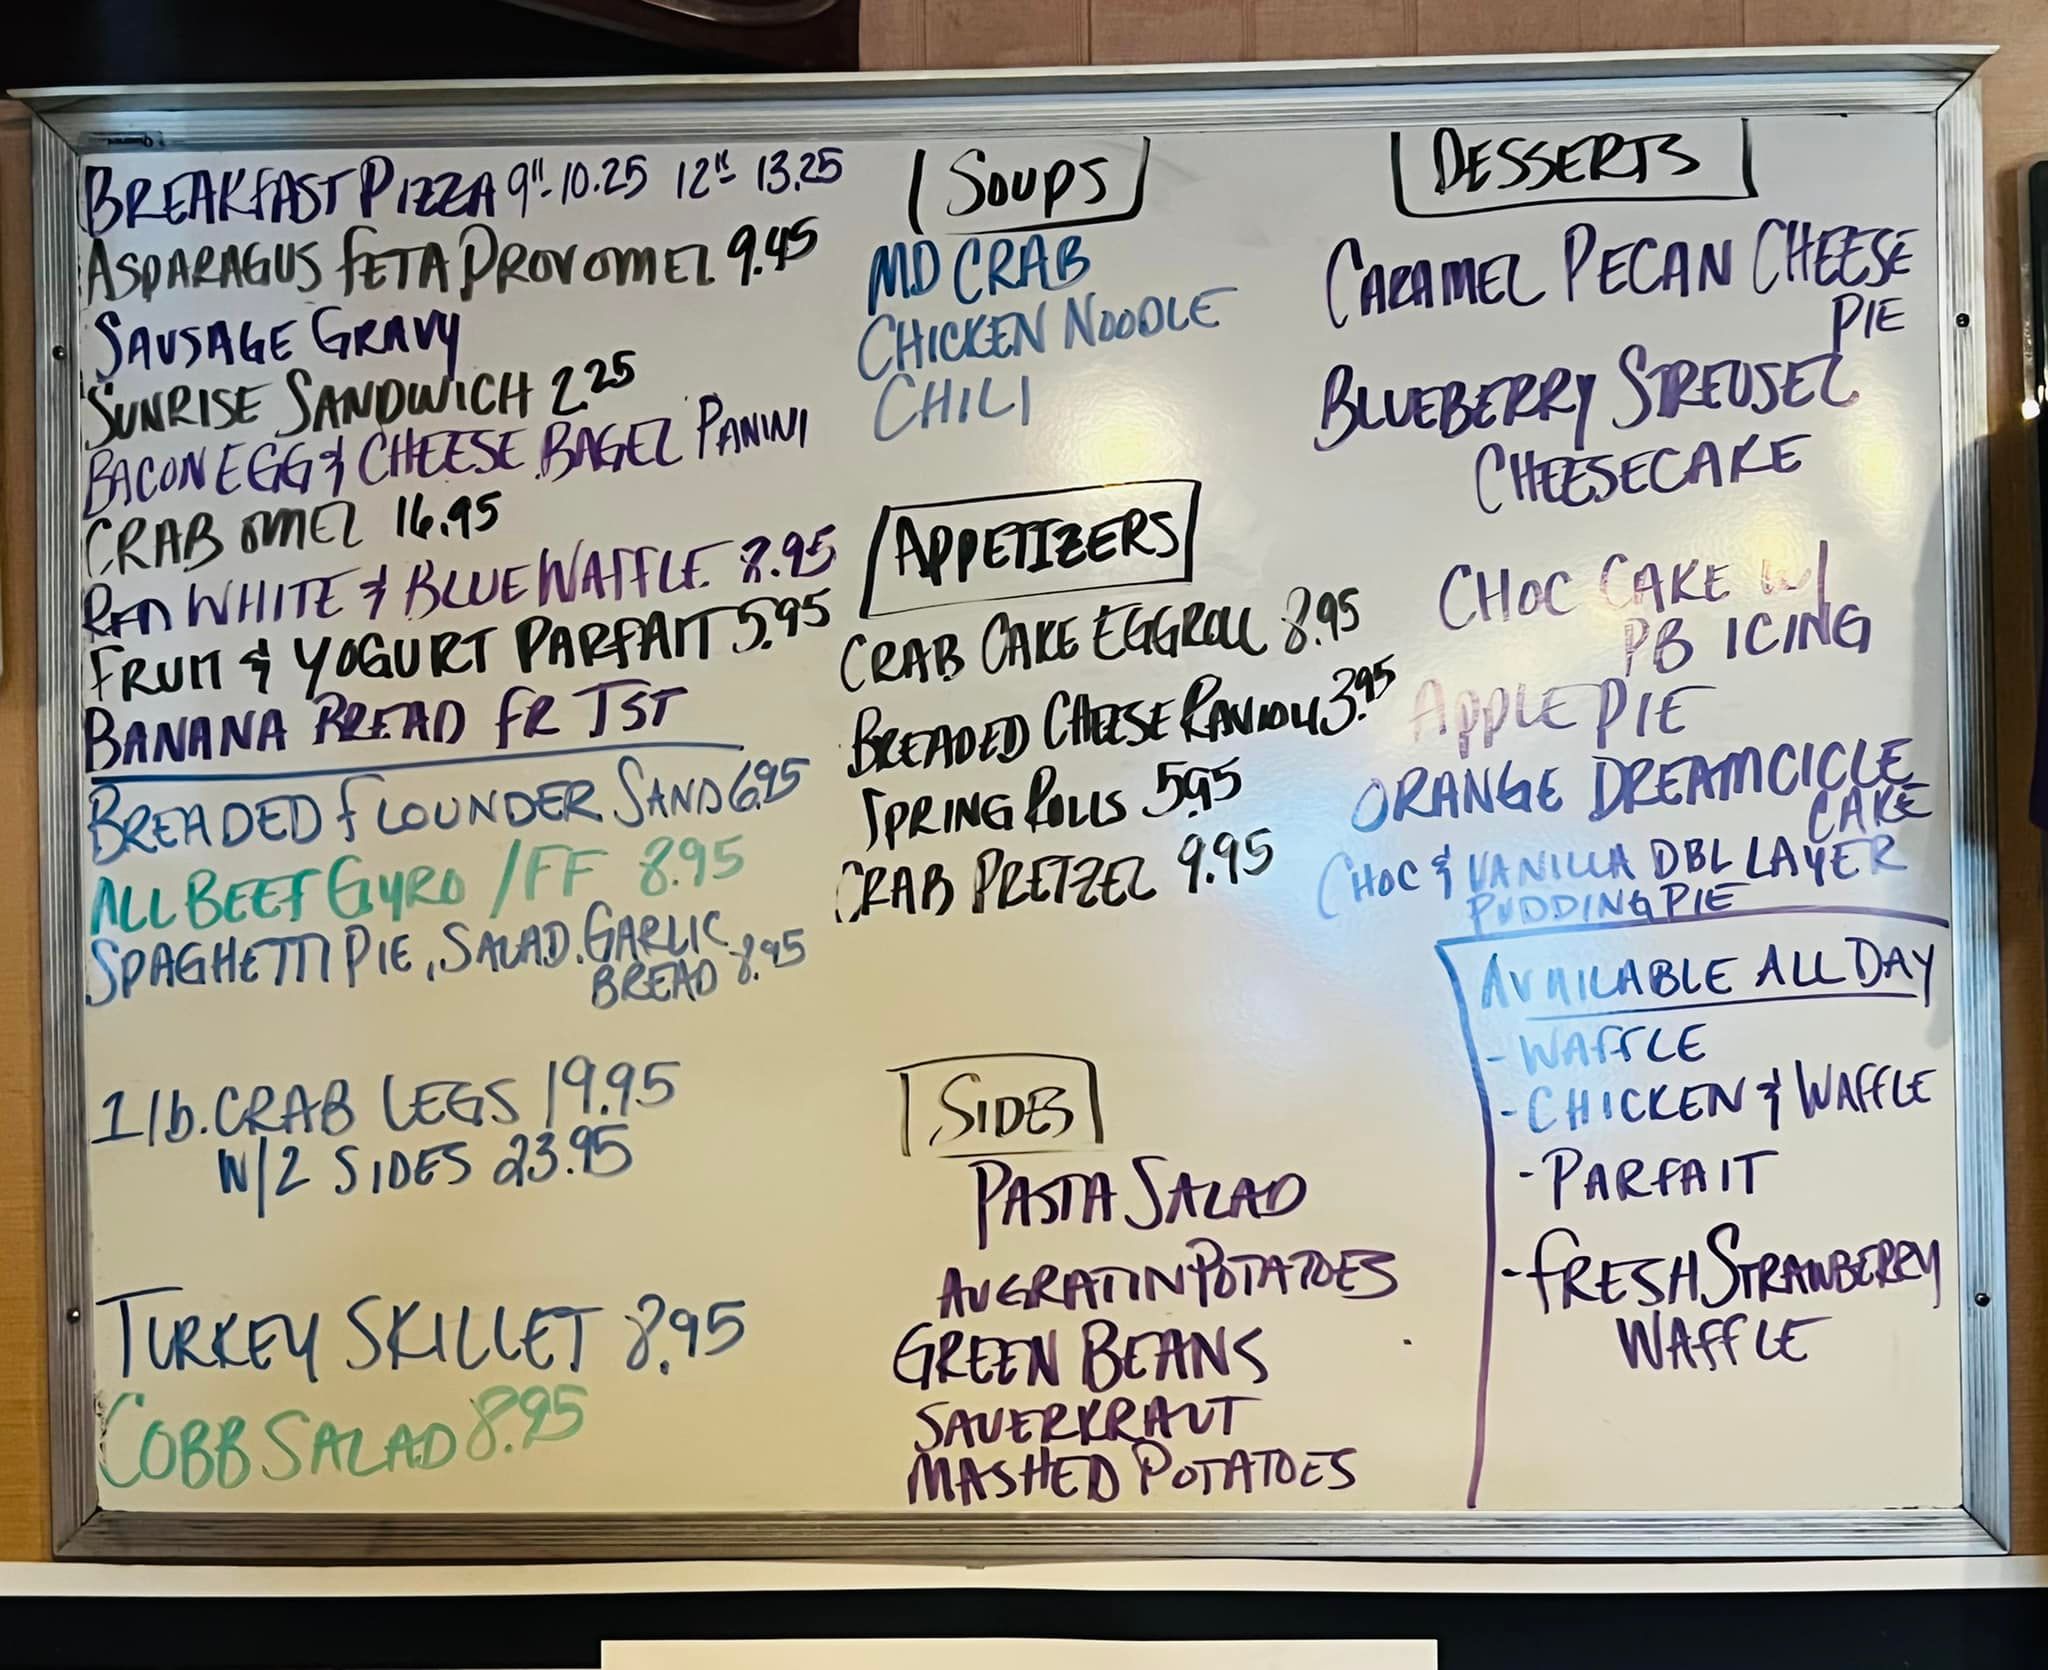 BREAKFAST PIZZA 9"-10.25 12" 13.25
ASPARAGUS FETA PROV OMEL 9.45
SAUSAGE GRAVY
SUNRISE SANDWICH 2.25
BACON EGG & CHEESE BAGEL PANINI
CRAB OMEL 16.95
RED WHITE & BLUE WAFFLE 8.95
FRUIT & YOGURT PARFAIT 5.95
BANANA BREAD FR TST
BREADED FLOUNDER SAND 6.95
ALL BEEF GYRO /FF 8.95
SPAGHETTI PIE, SALAD, GARLIC
BREAD 8.95
1 lb. CRAB LEGS 19.95
W/2 SIDES 23.95
TURKEY SKILLET 8.95
COBB SALAD 8.95
SOUPS
MD CRAB
CHICKEN NOODLE
CHILI
APPETIZERS
CRAB CAKE EGGROLL 8.95
BREADED CHEESE RAVIOLI 3.95
SPRING ROLLS 5.95
CRAB PRETZEL 9.95
SIDES
PASTA SALAD
AUGRATIN POTATOES
GREEN BEANS
SAUERKRAUT
MASHED POTATOES
DESSERTS
CARAMEL PECAN CHEESE
PIE
BLUEBERRY STREUSEL
CHEESECAKE
CHOC CAKE w/
PB ICING
APPLE PIE
ORANGE DREAMCICLE
CAKE
CHOC & VANILLA DBL LAYER
PUDDING PIE
AVAILABLE ALL DAY
- WAFFLE
- CHICKEN & WAFFLE
- PARFAIT
- FRESH STRAWBERRY
WAFFLE